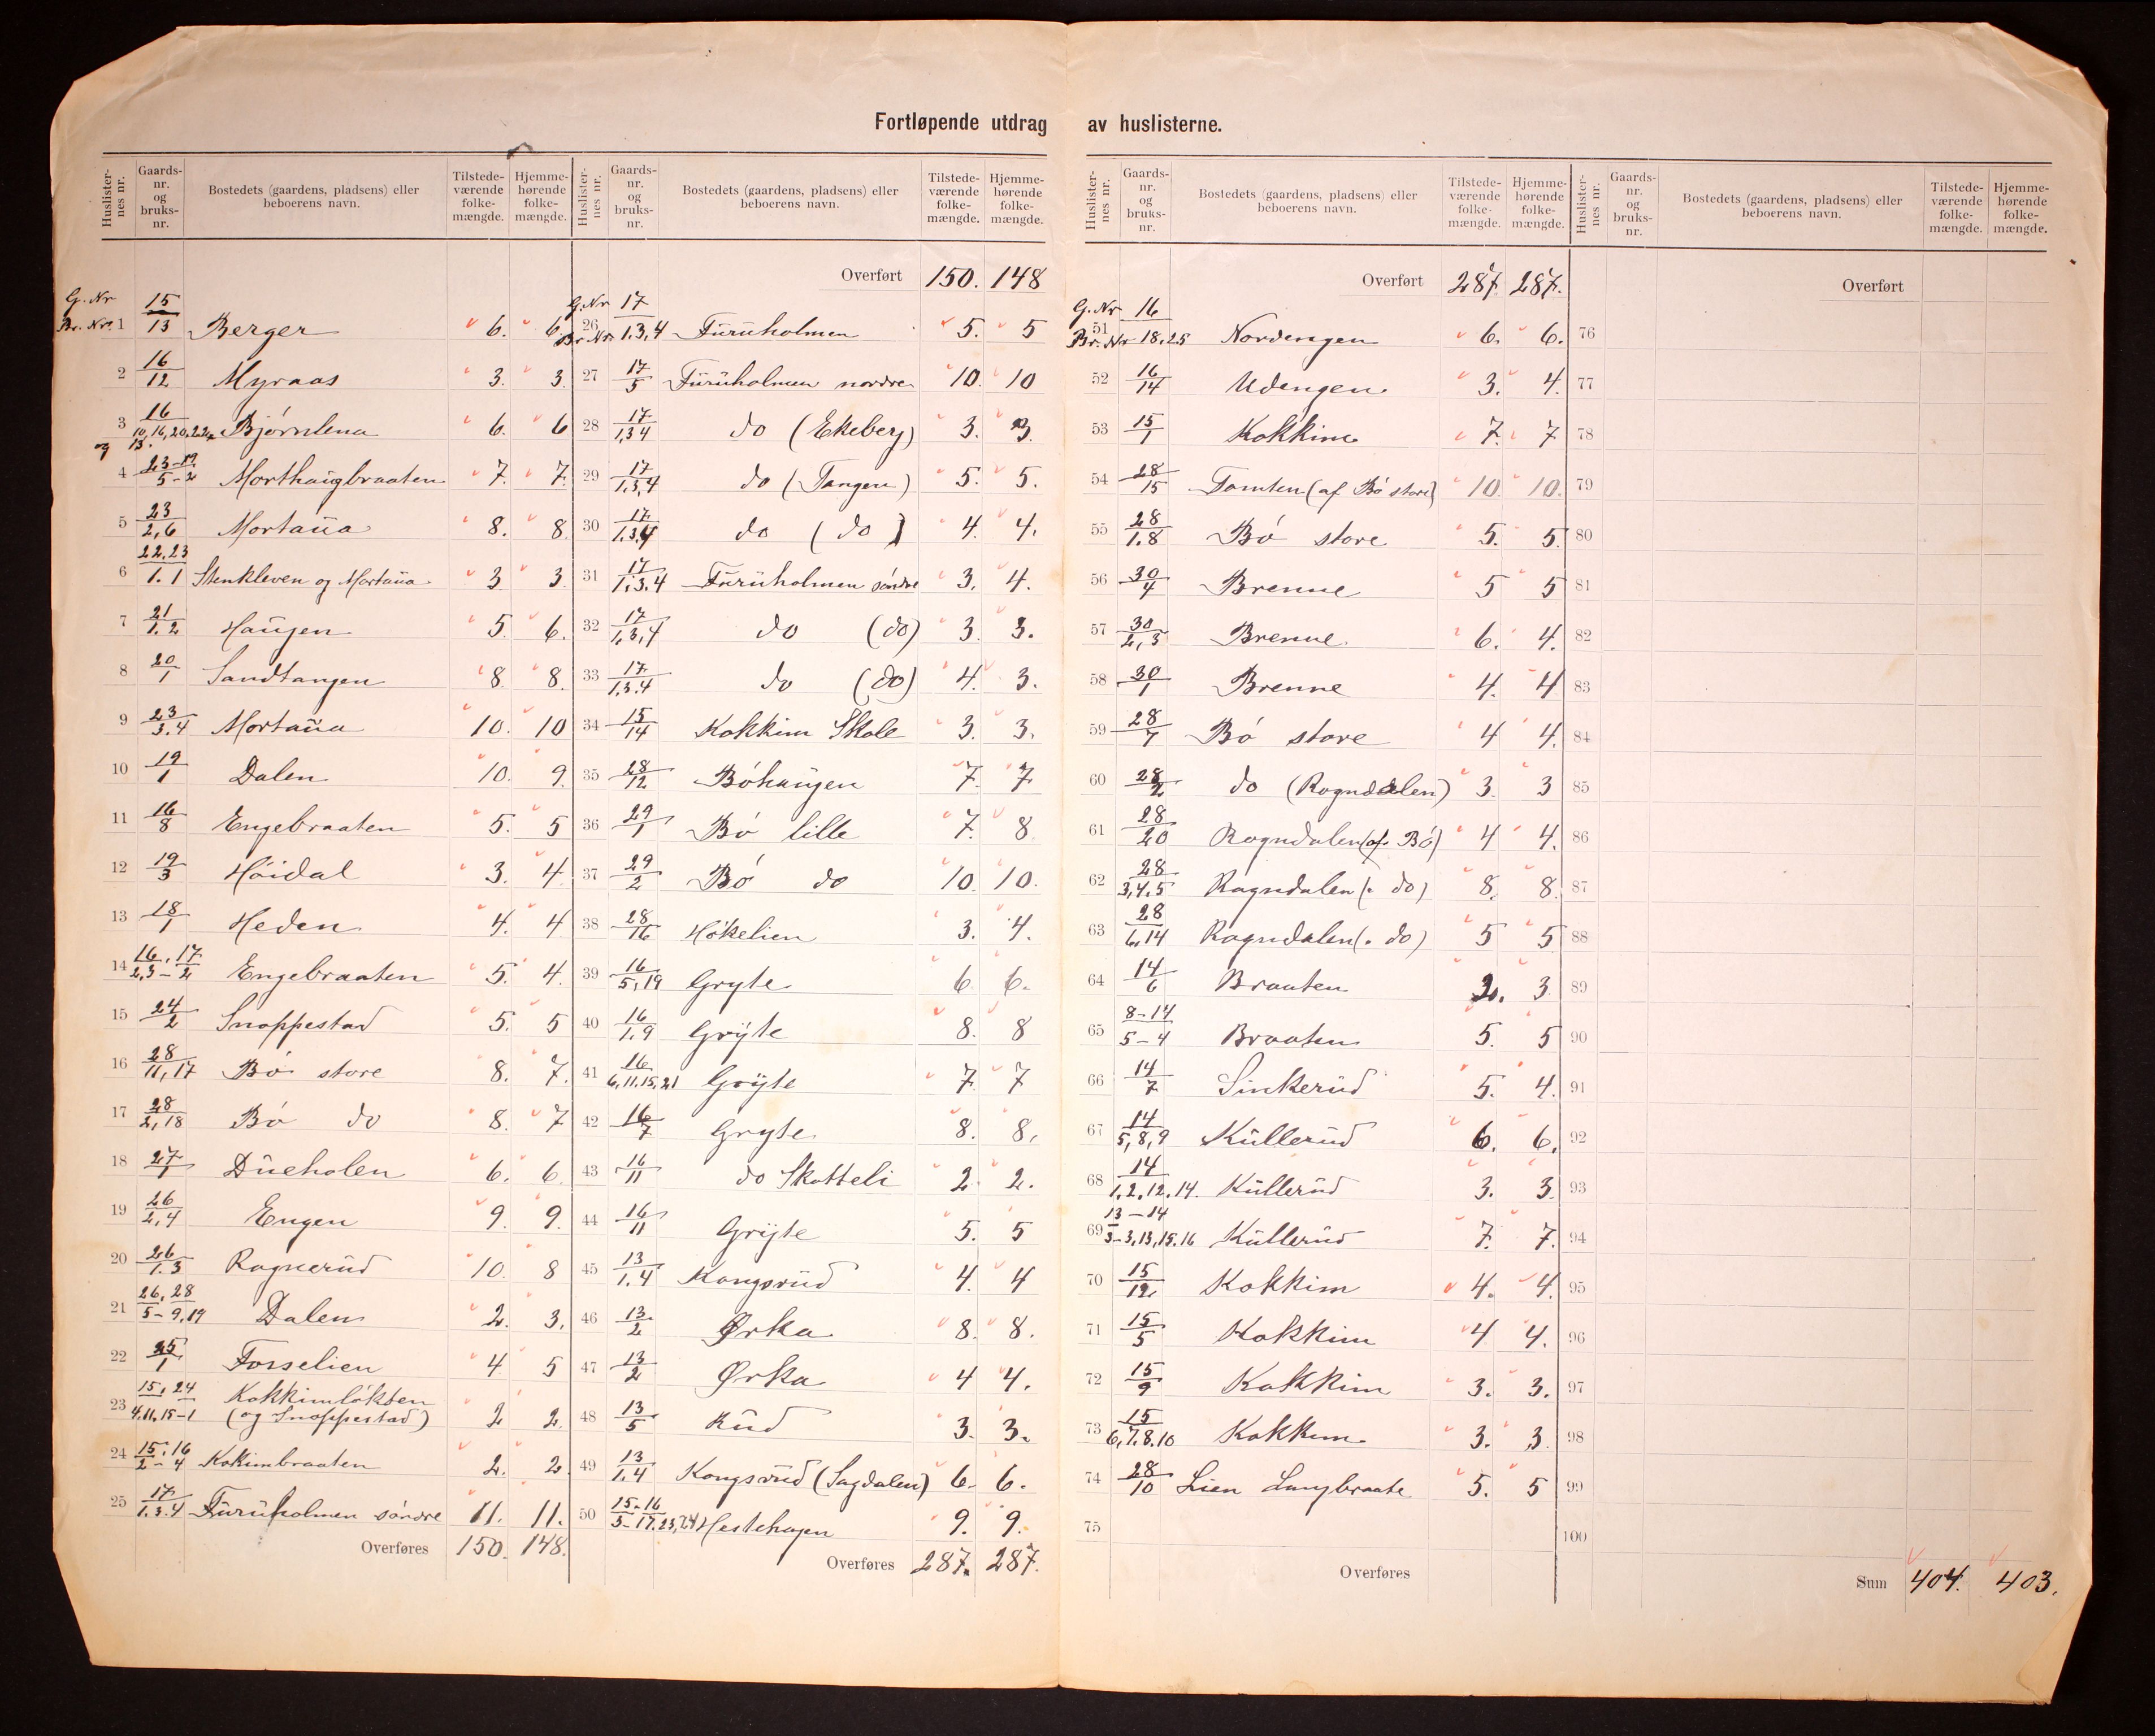 Fortløpende utdrag av huslisterne.
Huslisternes nr. | Gaards-nr. og bruks-nr. | Bostedets (gaardens, pladsens) eller beboerens navn. | Tilstede-værende folke-mængde. | Hjemme-hørende folke-mængde.
G. Nr 15
Br. Nr. 1 13 Berger 6. 6.
2 16/12 Myraas 3. 3.
3 16/10,16,20,22 og 13. Bjørnlena 6. 6
4 23-19/5-2 Morthaugbraaten 7. 7.
5 23/2,6 Mortaua 8. 8.
6 22.23/1.1 Stenkleven og Mortaua 3 3.
7 21/1.2 Haugen 5. 6.
8 20/1 Sandtangen 8. 8.
9 23/3.4 Mortaua 10. 10
10 19/1 Dalen 10. 9.
11 16/8 Engebraaten 5. 5
12 19/3 Höidal 3. 4.
13 18/1 Heden 4. 4
14 16,17/2,3-2 Engebraaten 5. 4.
15 24/2 Snoppestad 5. 5
16 28/11,17 Bó store 8. 7.
17 28/2,18 Bó do 8. 7
18 27/1 Dueholen 6. 6.
19 26/2,4 Engen 9. 9.
20 26/1.3 Ragnerud 10. 8
21 26,28/5-9,19 Dalen 2. 3.
22 25/1 Forselien 4 5
23 15,24/4.11.15-1 Kokkimlökken (og Snoppestad) 2 2.
24 15,16/2-4 Kokimbraaten 2. 2.
25 17/1.3.4 Furuholmen söndre 11. 11.
Overføres 150. 148.
Overført 150. 148
G. Nr 17
26 Br. Nr. 1,3,4 Furuholmen 5. 5
27 17/5 Furuholmen nordre 10. 10
28 17/1,3 4 do (Ekeberg) 3. 3.
29 17/1,3,4 do (Tangen) 5. 5.
30 17/1.3.4 do (do) 4. 4.
31 17/1.3.4 Furuholmen söndre 3. 4.
32 17/1,3,4 do (do) 3. 3.
33 17/1,3.4 do (do) 4. 3.
34 15/14 Kokkim Skole 3. 3.
35 28/12 Bóhaugen 7. 7
36 29/1 Bó lille 7. 8
37 29/2 Bó do 10. 10.
38 28/16 Hökelien 3. 4.
39 16/5,19 Gryte 6. 6.
40 16/1.9 Gryte 8. 8
41 16/6,11.15,21 Gryte 7. 7
42 16/7 Gryte 8. 8,
43 16/11 do Skotteli 2. 2.
44 16/11 Gryte 5. 5
45 13/1.4 Kongsrud 4. 4
46 13/2 Ørka 8. 8.
47 13/2 Ørka 4 4.
48 13/5 Rud 3. 3.
49 13/1.4 Kongsrud (Sagdalen) 6. 6.
50 15-16/3-17.23,24 Hestehagen 9. 9.
Overføres 287. 287.
Huslisternes nr. | Gaards-nr. og bruks-nr. | Bostedets (gaardens, pladsens) eller beboerens navn. | Tilstede-værende folke-mængde. | Hjemme-hørende folke-mængde.
Overført 287. 287.
G. Nr 16
51 Br. Nr 18,25 Nordengen 6. 6.
52 16/14 Udengen 3. 4.
53 15/1 Kokkim 7. 7
54 28/15 Tomten (af Bó store) 10. 10.
55 28/1.8 Bó store 5. 5.
56 30/4 Brenne 5 5
57 30/2,3 Brenne 6. 4.
58 30/1 Brenne 4. 4
59 28/7 Bó store 4 4.
60 28/2 do (Rogndalen) 3. 3
61 28/20 Rogndalen (af Bó) 4 4.
62 28/3,4.5 Rogndalen (" do) 8. 8.
63 28/6,14 Rogndalen (" do) 5 5
64 14/6 Braaten 2. 3.
65 8-14/5-4 Braaten 5. 5
66 14/7 Sinkerud 5. 4.
67 14/5,8,9 Kullerud 6. 6.
68 14/1.2.12.14. Kullerud 3. 3.
69 13-14/3-3,13,15.16 Kullerud 7. 7.
70 15/12 Kokkim 4. 4.
71 15/5 Kokkim 4 4.
72 15/9 Kokkim 3. 3.
73 15/6,7.8.10 Kokkim 3. 3.
74 28/10 Lien Langbraate 5. 5
75
Overføres
Overført
76
77
78
79
80
81
82
83
84
85
86
87
88
89
90
91
92
93
94
95
96
97
98
99
100
Sum 404. 403.